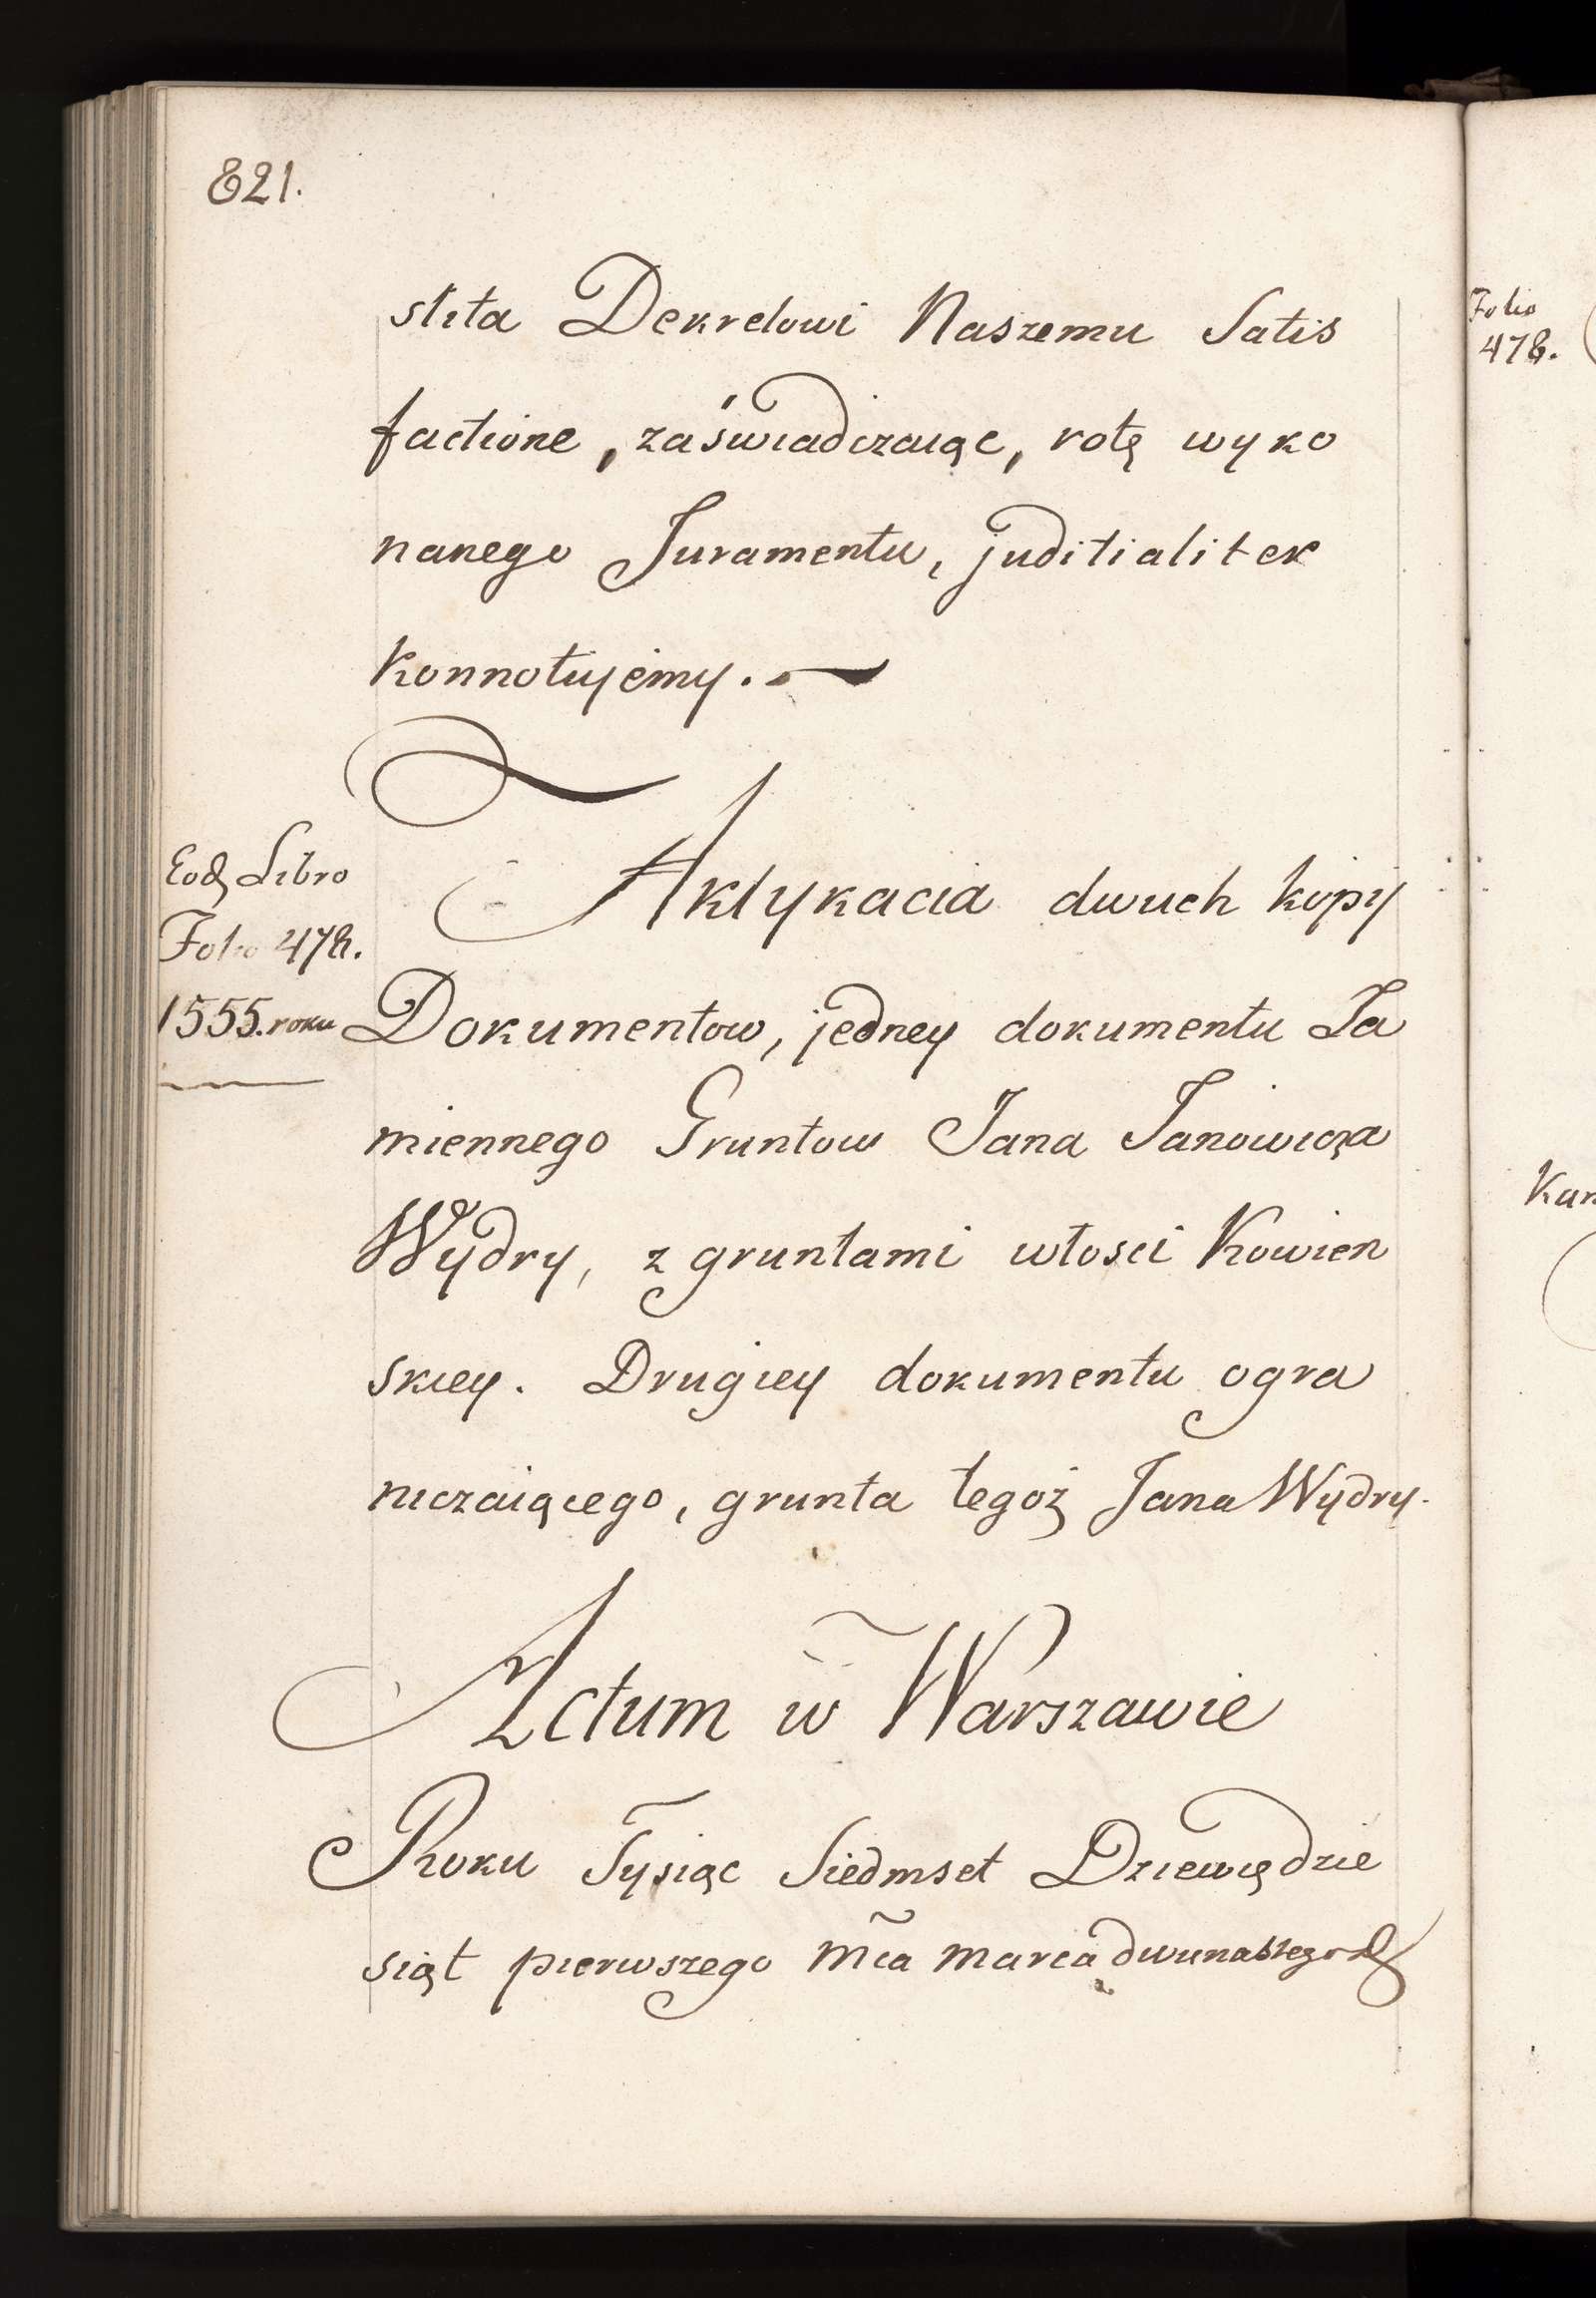 821.
stita Dekretowi Naszemu Satis
factione, zaświadczaiąc, rotę wyko
nanego Juramentu, juditialiter
konnotujemy.
Eod Libro
Folio 478.
1555. roku
Aktykacia dwuch kopij
Dokumentow, jedney dokumentu Za
miennego Gruntow Jana Janowicza
Wydry, z gruntami włosci Kowien
skiey. Drugiey dokumentu ogra
niczaiącego, grunta tegoż Jana Wydry.
Actum w Warszawie
Roku Tysiąc Siedmset Dziewiędzie
siąt pierwszego Mca Marca dwunastego d
Folio
478.